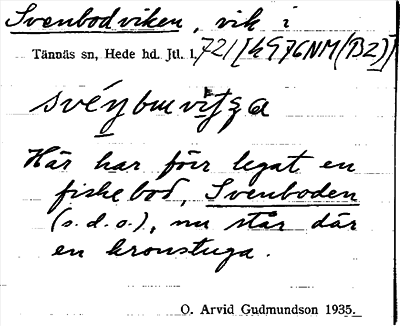 Svenbodviken, vik i
Tännäs sn, Hede hd. Jtl. l. 721 [49J6NM(BZ)]
Här har förr legat en
fiskebod, Svenboden
(s.d.o.), nu står där
en kronstuga.
O. Arvid Gudmundson 1935.